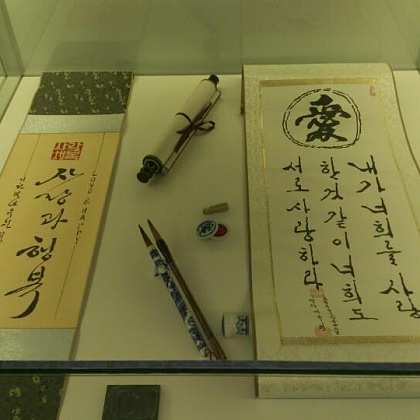 사랑과 행복
LOVE & HAPPY
愛
내가 너희를 사랑
한것 같이 너희도
서로 사랑하라